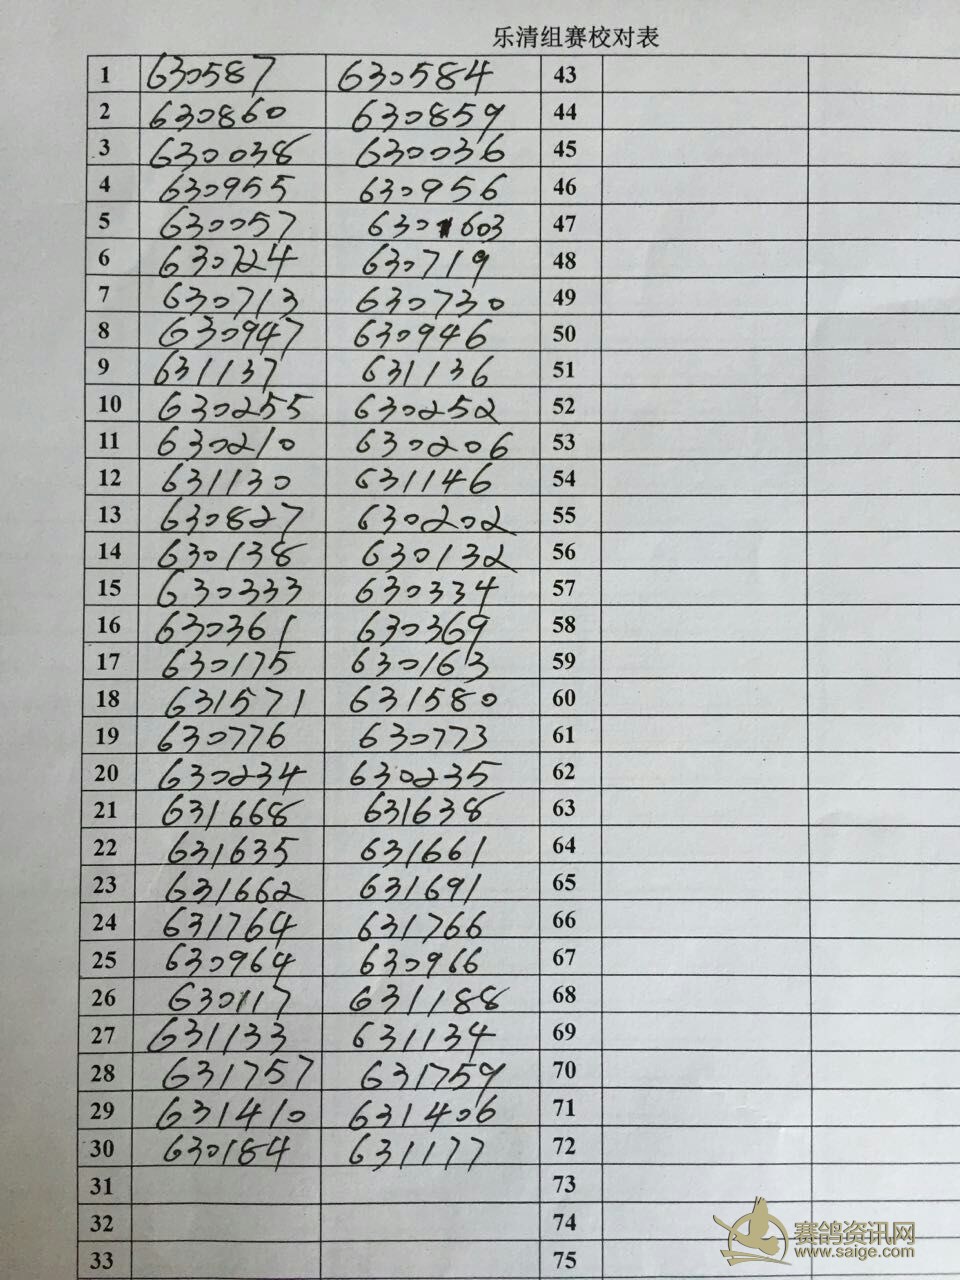 乐清组赛校对表
1 630587 630584 43
2 630860 630859 44
3 630038 630036 45
4 630955 630956 46
5 630057 630 1603 47
6 630724 630719 48
7 630713 630730 49
8 630947 630946 50
9 631137 631136 51
10 630255 630252 52
11 630210 630206 53
12 631130 631146 54
13 630827 630202 55
14 630138 630132 56
15 630333 630334 57
16 630361 630369 58
17 630175 630163 59
18 631571 631580 60
19 630776 630773 61
20 630234 630235 62
21 631668 631638 63
22 631635 631661 64
23 631662 631691 65
24 631764 631766 66
25 630964 630966 67
26 630117 631188 68
27 631133 631134 69
28 631757 631759 70
29 631410 631406 71
30 630184 631177 72
31 73
32 74
33 75
赛鸽资讯网
www.saige.com